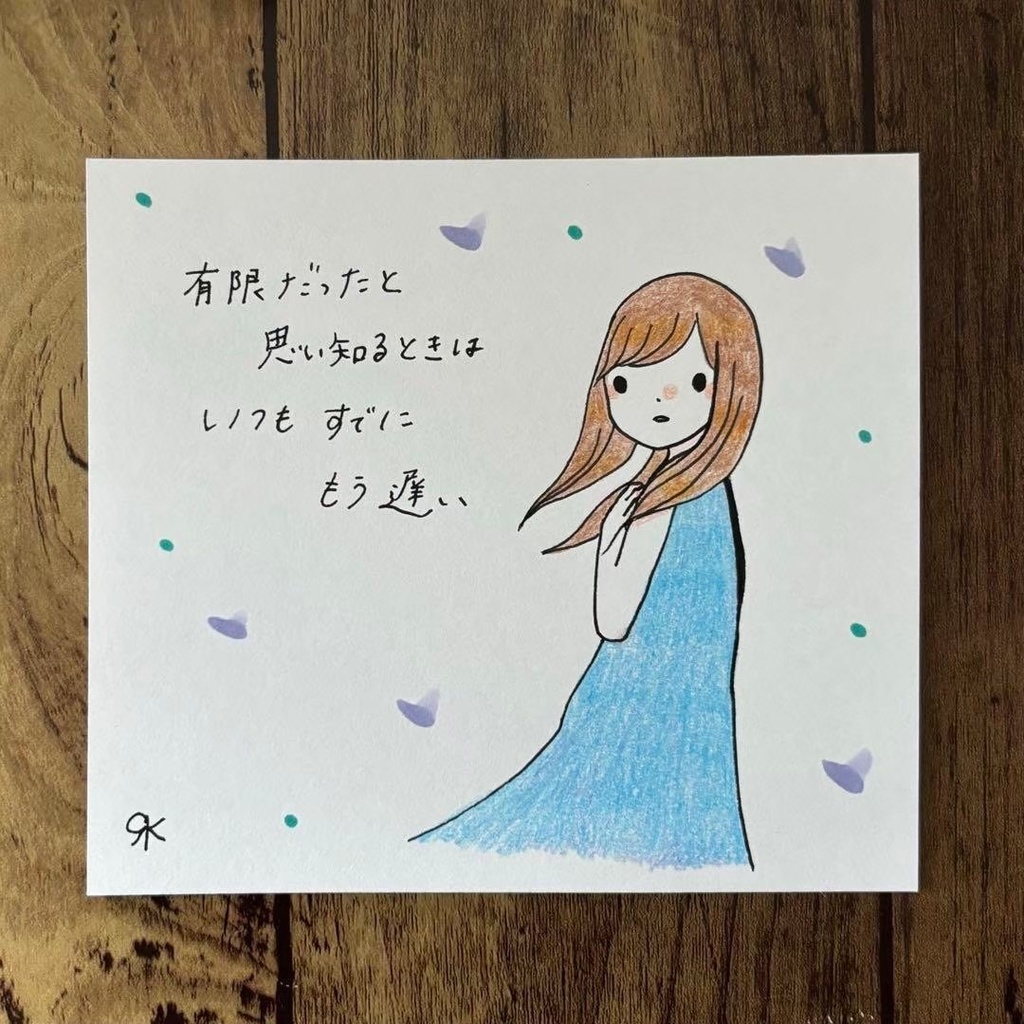 有限だったと
思い知るときは
いつも すでに
もう遅い